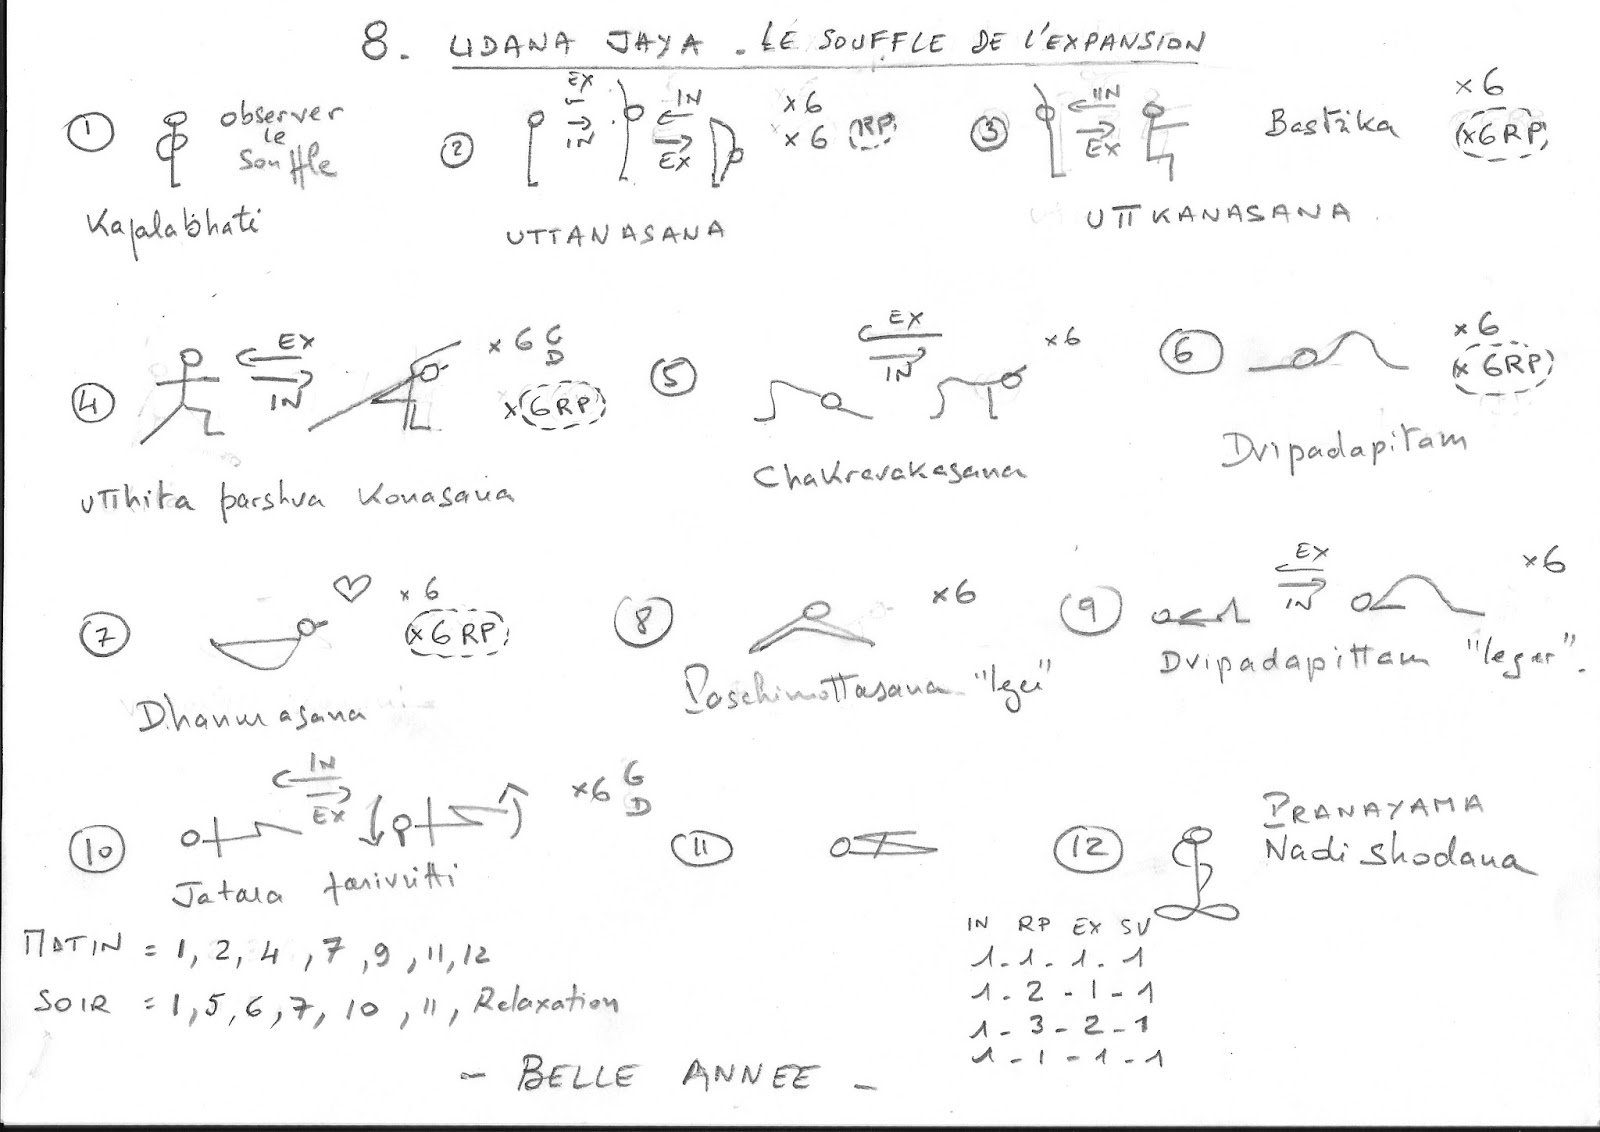 8. UDANA JAYA - LE SOUFFLE DE L'EXPANSION
1 observer
le
souffle
Kapalabhati
2 EX IN IN EX x6
x6 RP
UTTANASANA
3 IN EX Bastrika x6
x6RP
UTTKANASANA
4 EX IN x6 G
D
x6RP
UTThita parshva Konasana
5 EX IN x6
Chakravakasana
6 x6
x6RP
Dvipadapitam
7 x6
x6RP
Dhanurasana
8 x6
Paschimottasana
9 EX IN x6
Dvipadapittam "leger".
10 IN EX x6 G
D
Jatara parivritti
11
12 PRANAYAMA
Nadi Shodana
IN RP EX SV
1-1-1-1
1-2-1-1
1-3-2-1
1-1-1-1
MATIN = 1, 2, 4, 7, 9, 11, 12
SOIR = 1, 5, 6, 7, 10, 11, Relaxation
- BELLE ANNEE -